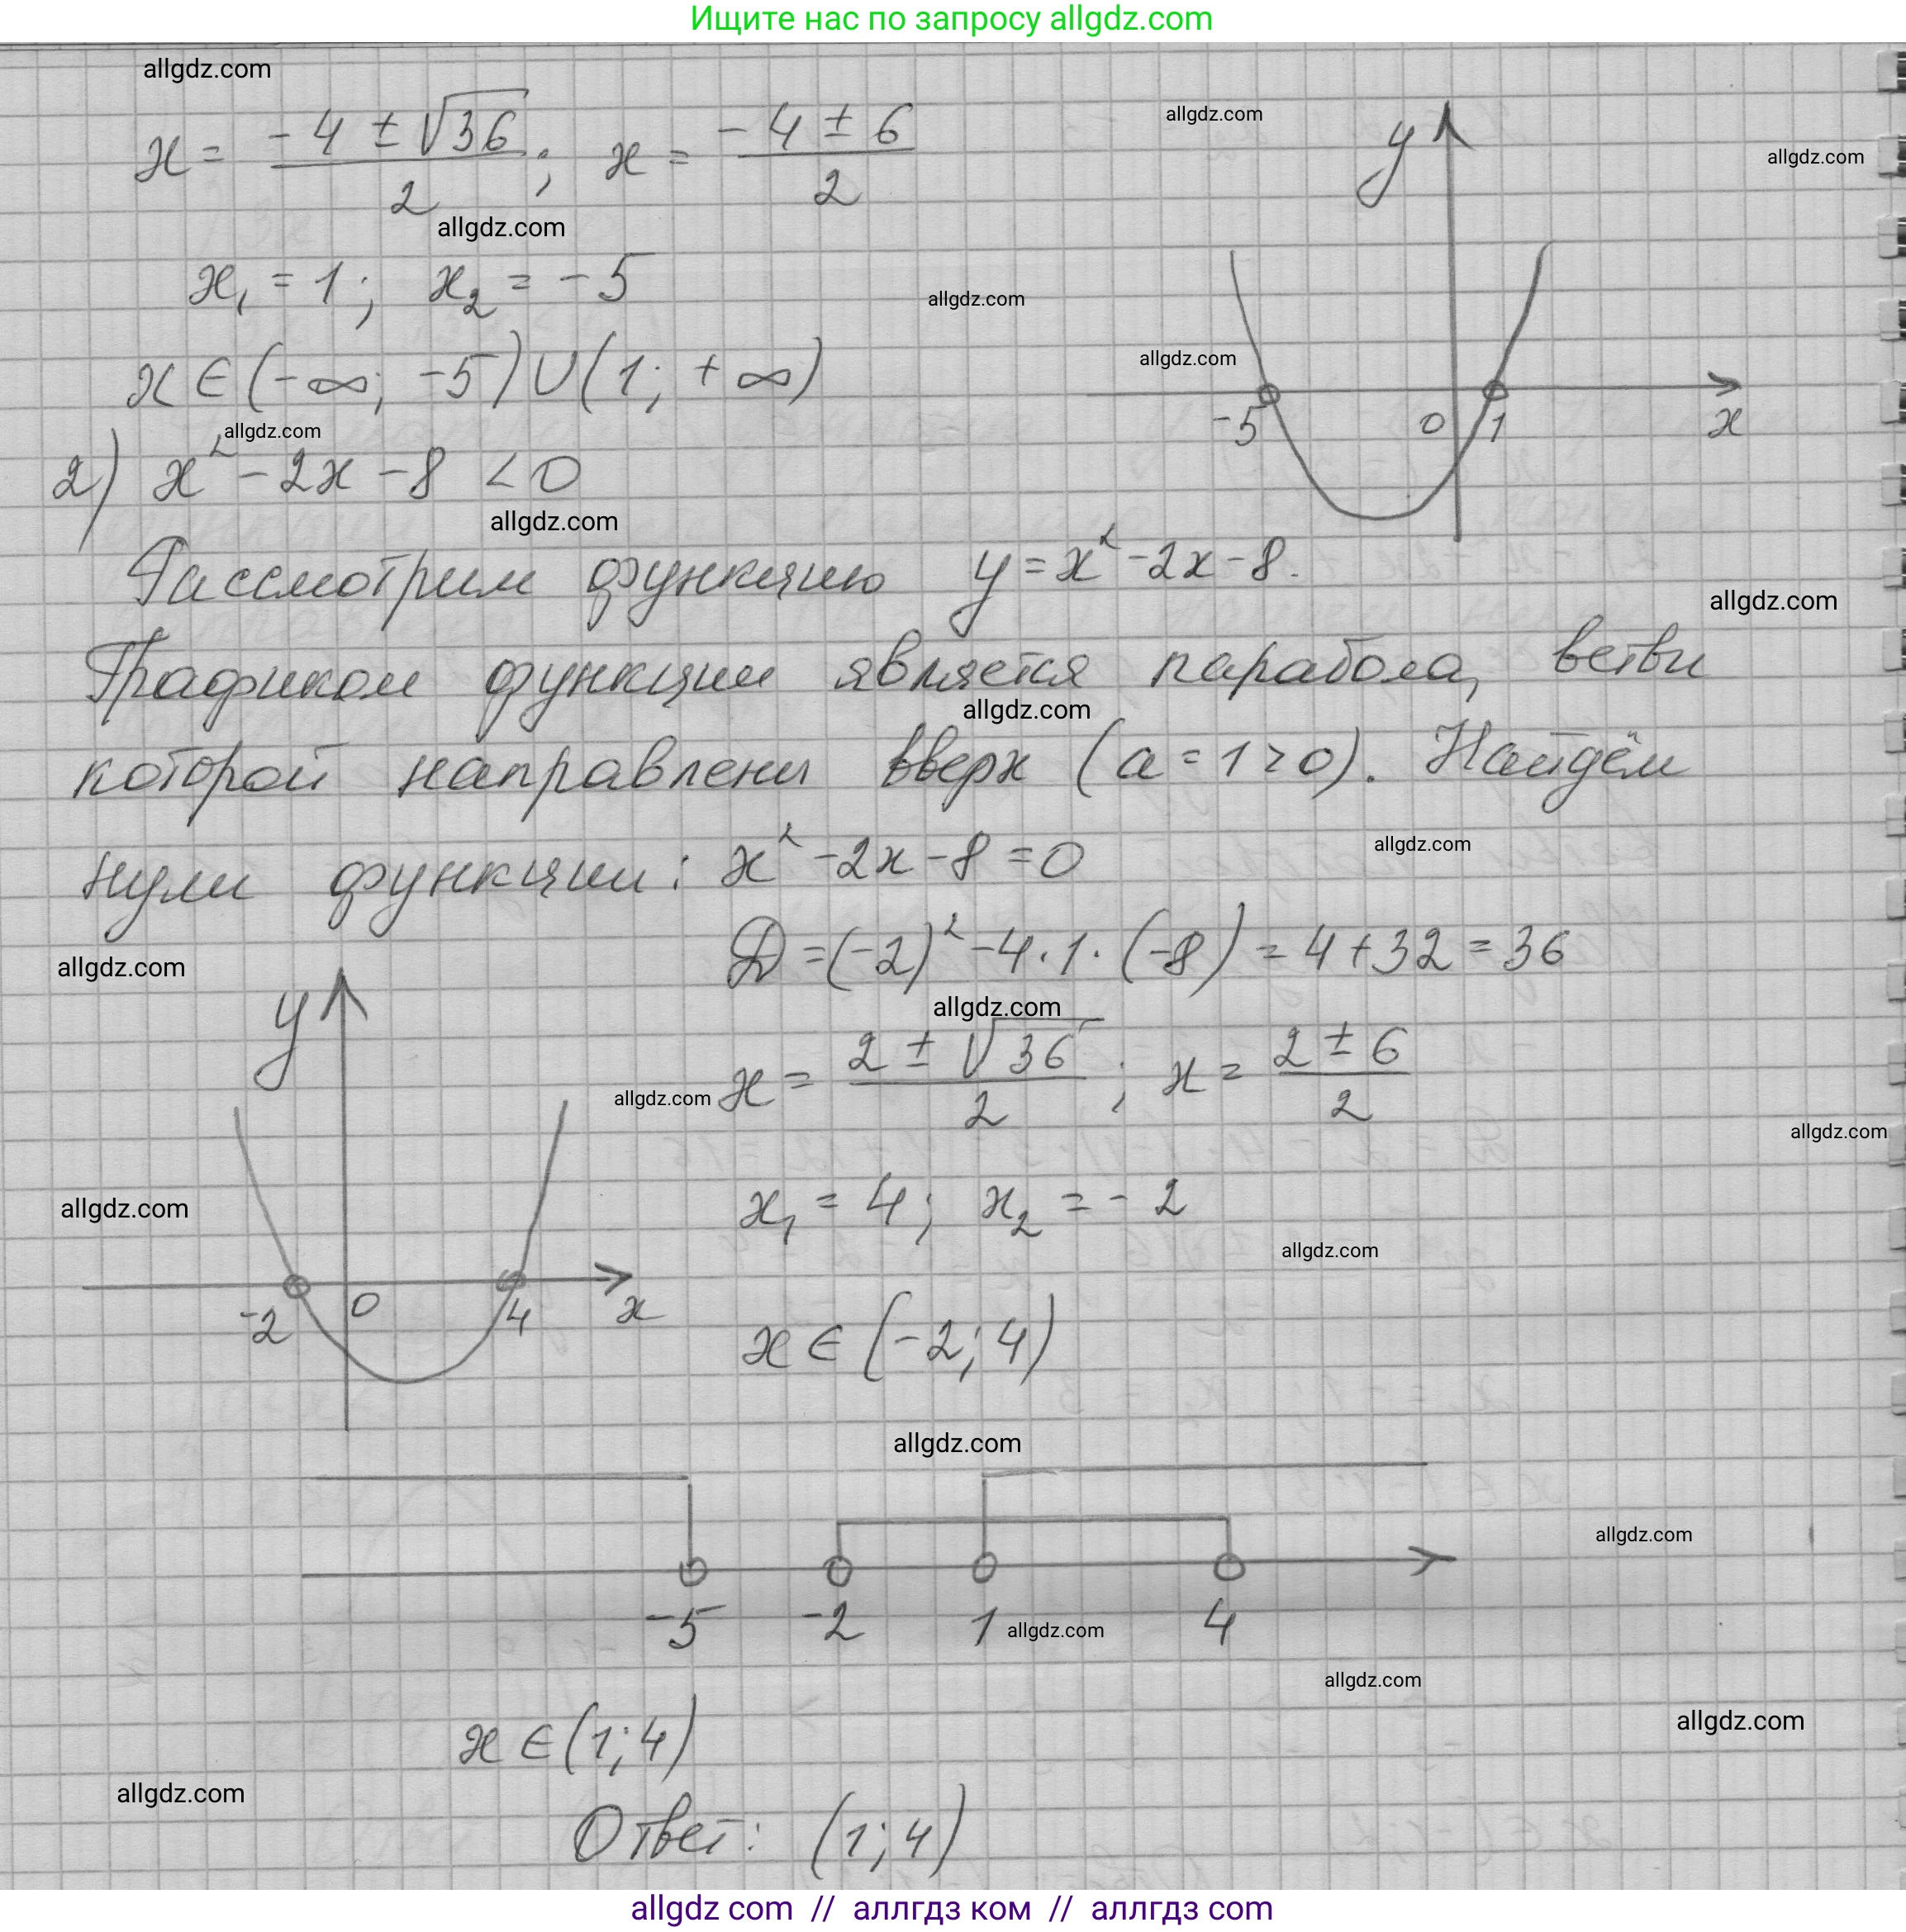 Ищите нас по запросу allgdz.com
allgdz.com
allgdz.com
allgdz.com
x = (-4 ± √36)/2 ; x = (-4 ± 6)/2
y
allgdz.com
x₁ = 1 ; x₂ = -5
allgdz.com
allgdz.com
x ∈ (-∞; -5) ∪ (1; +∞)
-5 0 1 x
allgdz.com
2) x² - 2x - 8 < 0
allgdz.com
Рассмотрим функцию y = x² - 2x - 8.
allgdz.com
Графиком функции является парабола, ветви
allgdz.com
которой направлены вверх (a = 1 > 0). Найдём
allgdz.com
нули функции: x² - 2x - 8 = 0
D = (-2)² - 4 · 1 · (-8) = 4 + 32 = 36
allgdz.com
allgdz.com
y
x = (2 ± √36)/2 ; x = (2 ± 6)/2
allgdz.com
allgdz.com
x₁ = 4 ; x₂ = -2
allgdz.com
allgdz.com
-2 0 4 x
x ∈ (-2; 4)
allgdz.com
allgdz.com
-5 -2 1 4
allgdz.com
allgdz.com
allgdz.com
x ∈ (1; 4)
allgdz.com
Ответ: (1; 4)
allgdz com // аллгдз ком // аллгдз com